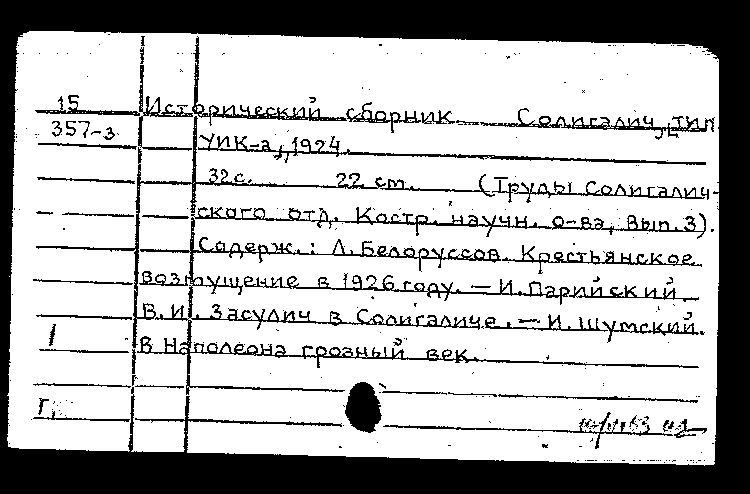 15 Исторический сборник Солигалич, тип.
357-3 УИК-а, 1924.
32 с. 22 см. (Труды Солигалич-
ского отд. Костр. научн. о-ва, Вып. 3).
Содерж.: Л. Белоруссов. Крестьянское
возмущение в 1926 году. — И. Парийский
В. И. Засулич в Солигаличе. — И. Шумский.
1 В Наполеона грозный век.
Г.